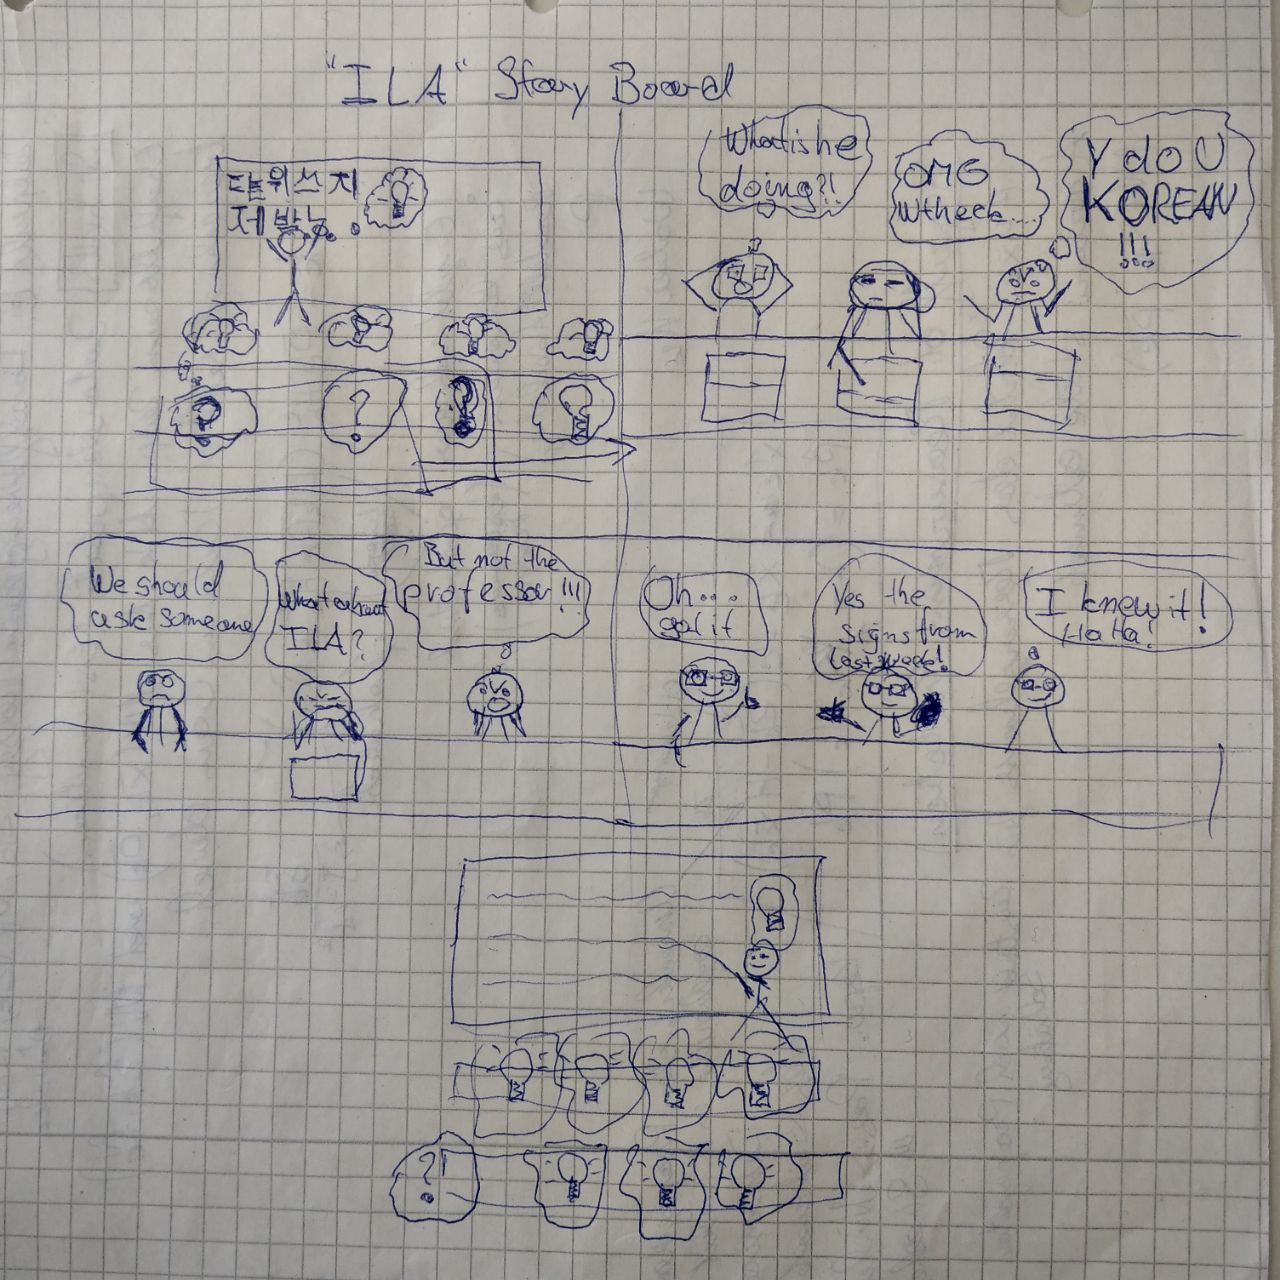 "ILA" Story Board
제발
What is he
doing?!
OMG
wtheck...
Y do U
KOREAN
!!!
?
We should
aske someone
What about
ILA?
But not the
professor!!!
Oh...
got it
Yes the
signs from
last week!
I knew it!
HaHa!
?!